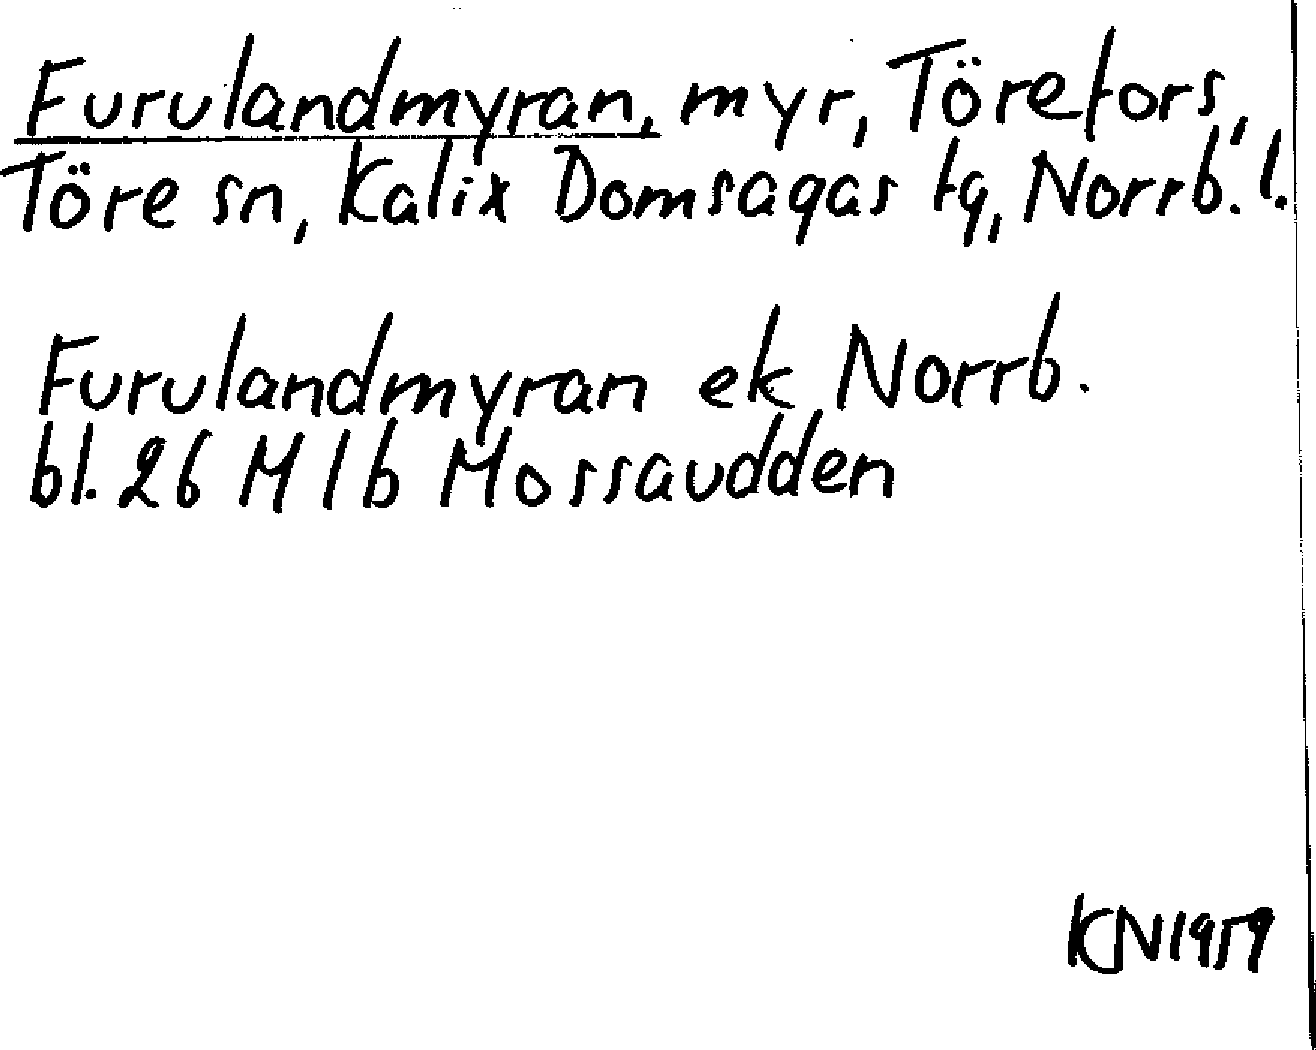 Furulandmyran, myr, Törefors,
Töre sn, Kalix Domsagas tg, Norrb. l.
Furulandmyran ek Norrb.
bl. 26 M 1b Mossaudden
KN1959